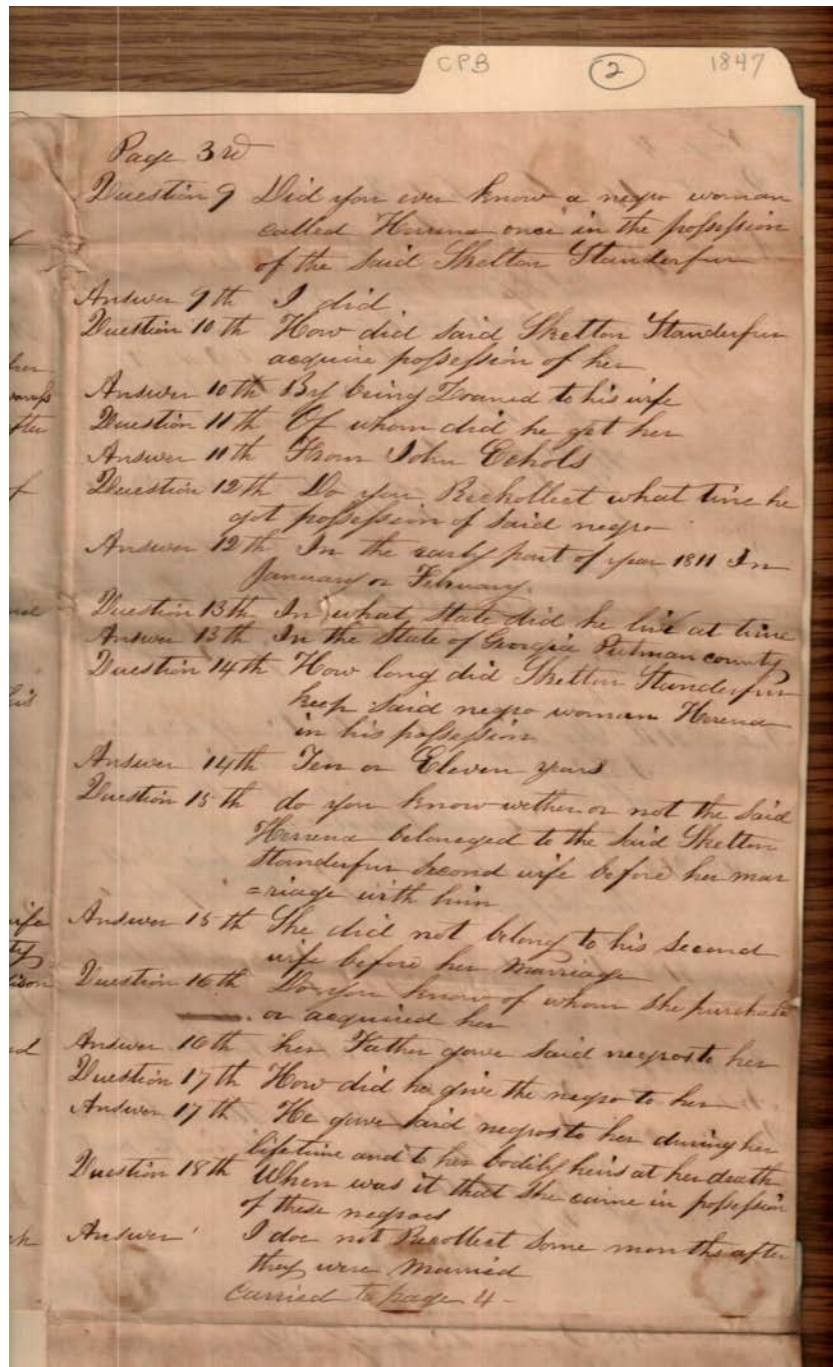 CPB 2 1847
Page 3rd
Question 9 Did you ever know a negro woman
called Herena once in the possession
of the said Skelton Standerfur
Answer 9th I did
Question 10th How did said Skelton Standerfur
acquire possession of her
Answer 10th By being Loaned to his wife
Question 11th Of whom did he get her
Answer 11th From John Echols
Question 12th Do you Reckollect what time he
got possession of said negro
Answer 12th In the early part of year 1811 In
January or February
Question 13th In what state did he live at time
Answer 13th In the State of Georgia Putman county
Question 14th How long did Skelton Standerfur
keep said negro woman Herena
in his possession
Answer 14th Ten or Eleven years
Question 15th do you know wether or not the said
Herena beloneged to the said Skelton
Standerfur second wife before her mar
=riage with him
Answer 15th She did not belong to his second
wife before her Marriage
Question 16th Do you know of whom she purchased
or acquired her
Answer 16th her Father gave said negros to her
Question 17th How did he give the negro to her
Answer 17th He gave said negros to her during her
lifetime and to her bodily heirs at her death
Question 18th When was it that she came in possession
of these negroes
Answer I doe not Recollect some months after
they were married
carried to page 4-